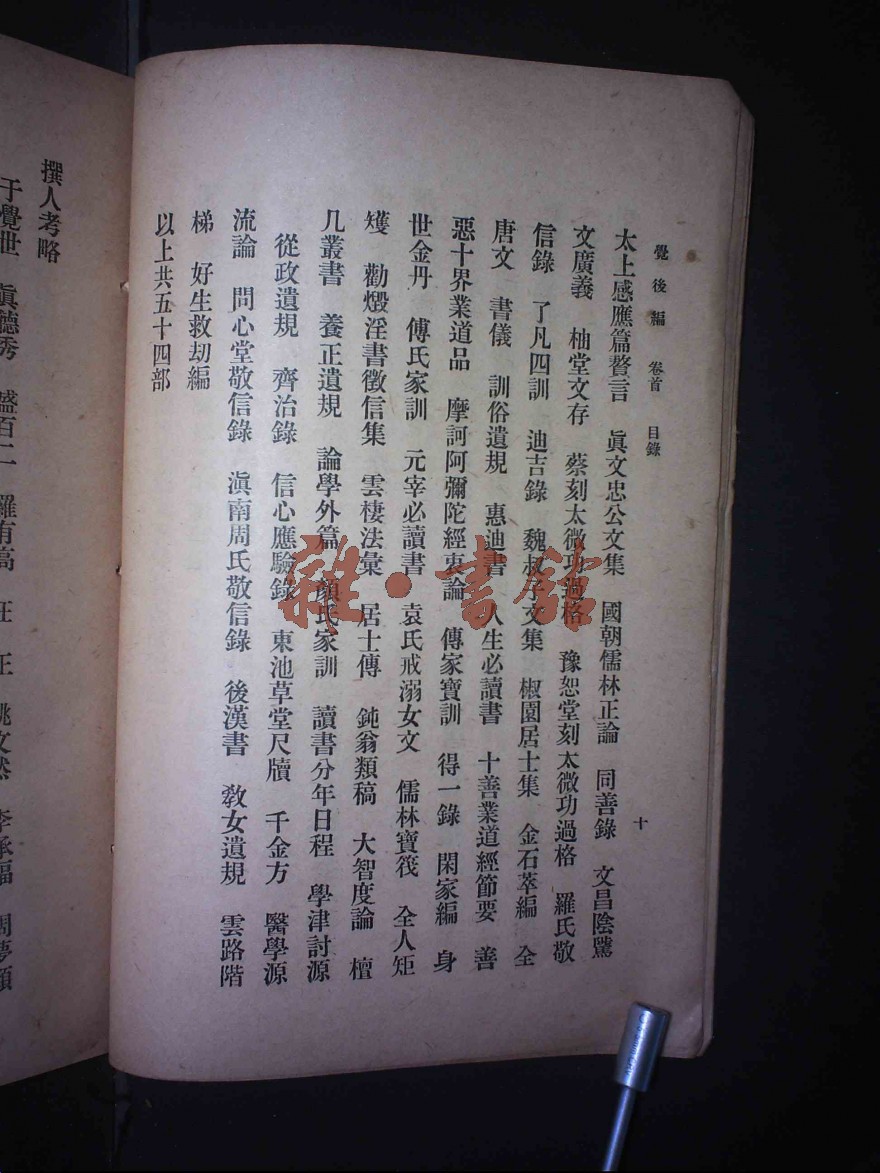 覺後編　卷首　目錄　十
太上感應篇贅言　眞文忠公文集　國朝儒林正論　同善錄　文昌陰騭
文廣義　柚堂文存　蔡刻太微功過格　豫恕堂刻太微功過格　羅氏敬
信錄　了凡四訓　迪吉錄　魏叔子文集　椒園居士集　金石萃編　全
唐文　書儀　訓俗遺規　惠迪書　人生必讀書　十善業道經節要　善
惡十界業道品　摩訶阿彌陀經衷論　傳家寶訓　得一錄　閑家編　身
世金丹　傅氏家訓　元宰必讀書　袁氏戒溺女文　儒林寶筏　全人矩
矱　勸燬淫書徵信集　雲棲法彙　居士傳　鈍翁類稿　大智度論　檀
几叢書　養正遺規　論學外篇　顏氏家訓　讀書分年日程　學津討源
從政遺規　齊治錄　信心應驗錄　東池草堂尺牘　千金方　醫學源
流論　問心堂敬信錄　滇南周氏敬信錄　後漢書　敎女遺規　雲路階
梯　好生救劫編
以上共五十四部
撰人考略
于覺世　眞德秀　盛百二　羅有高　汪　汪　姚文然　李承福　周夢顏
雜·書館